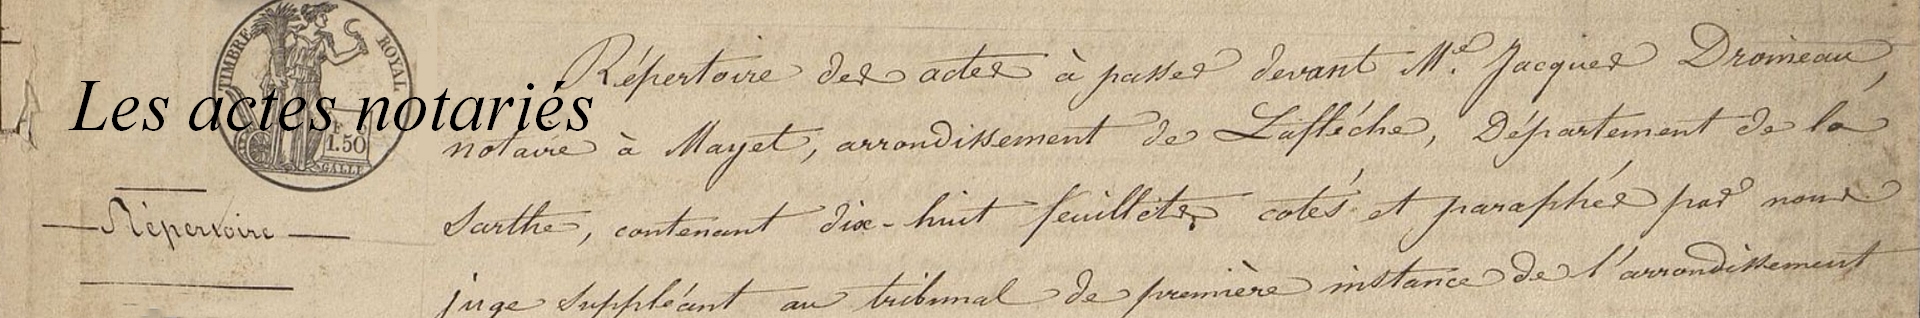 TIMBRE ROYAL
F
1.50
GALLE
Les actes notariés
Répertoire
Répertoire des actes à passer devant Me. Jacques Droineau,
notaire à Mayet, arrondissement de Laflèche, Département de la
Sarthe, contenant dix-huit feuillets, cotés et paraphés par nous
juge suppléant au tribunal de première instance de l'arrondissement